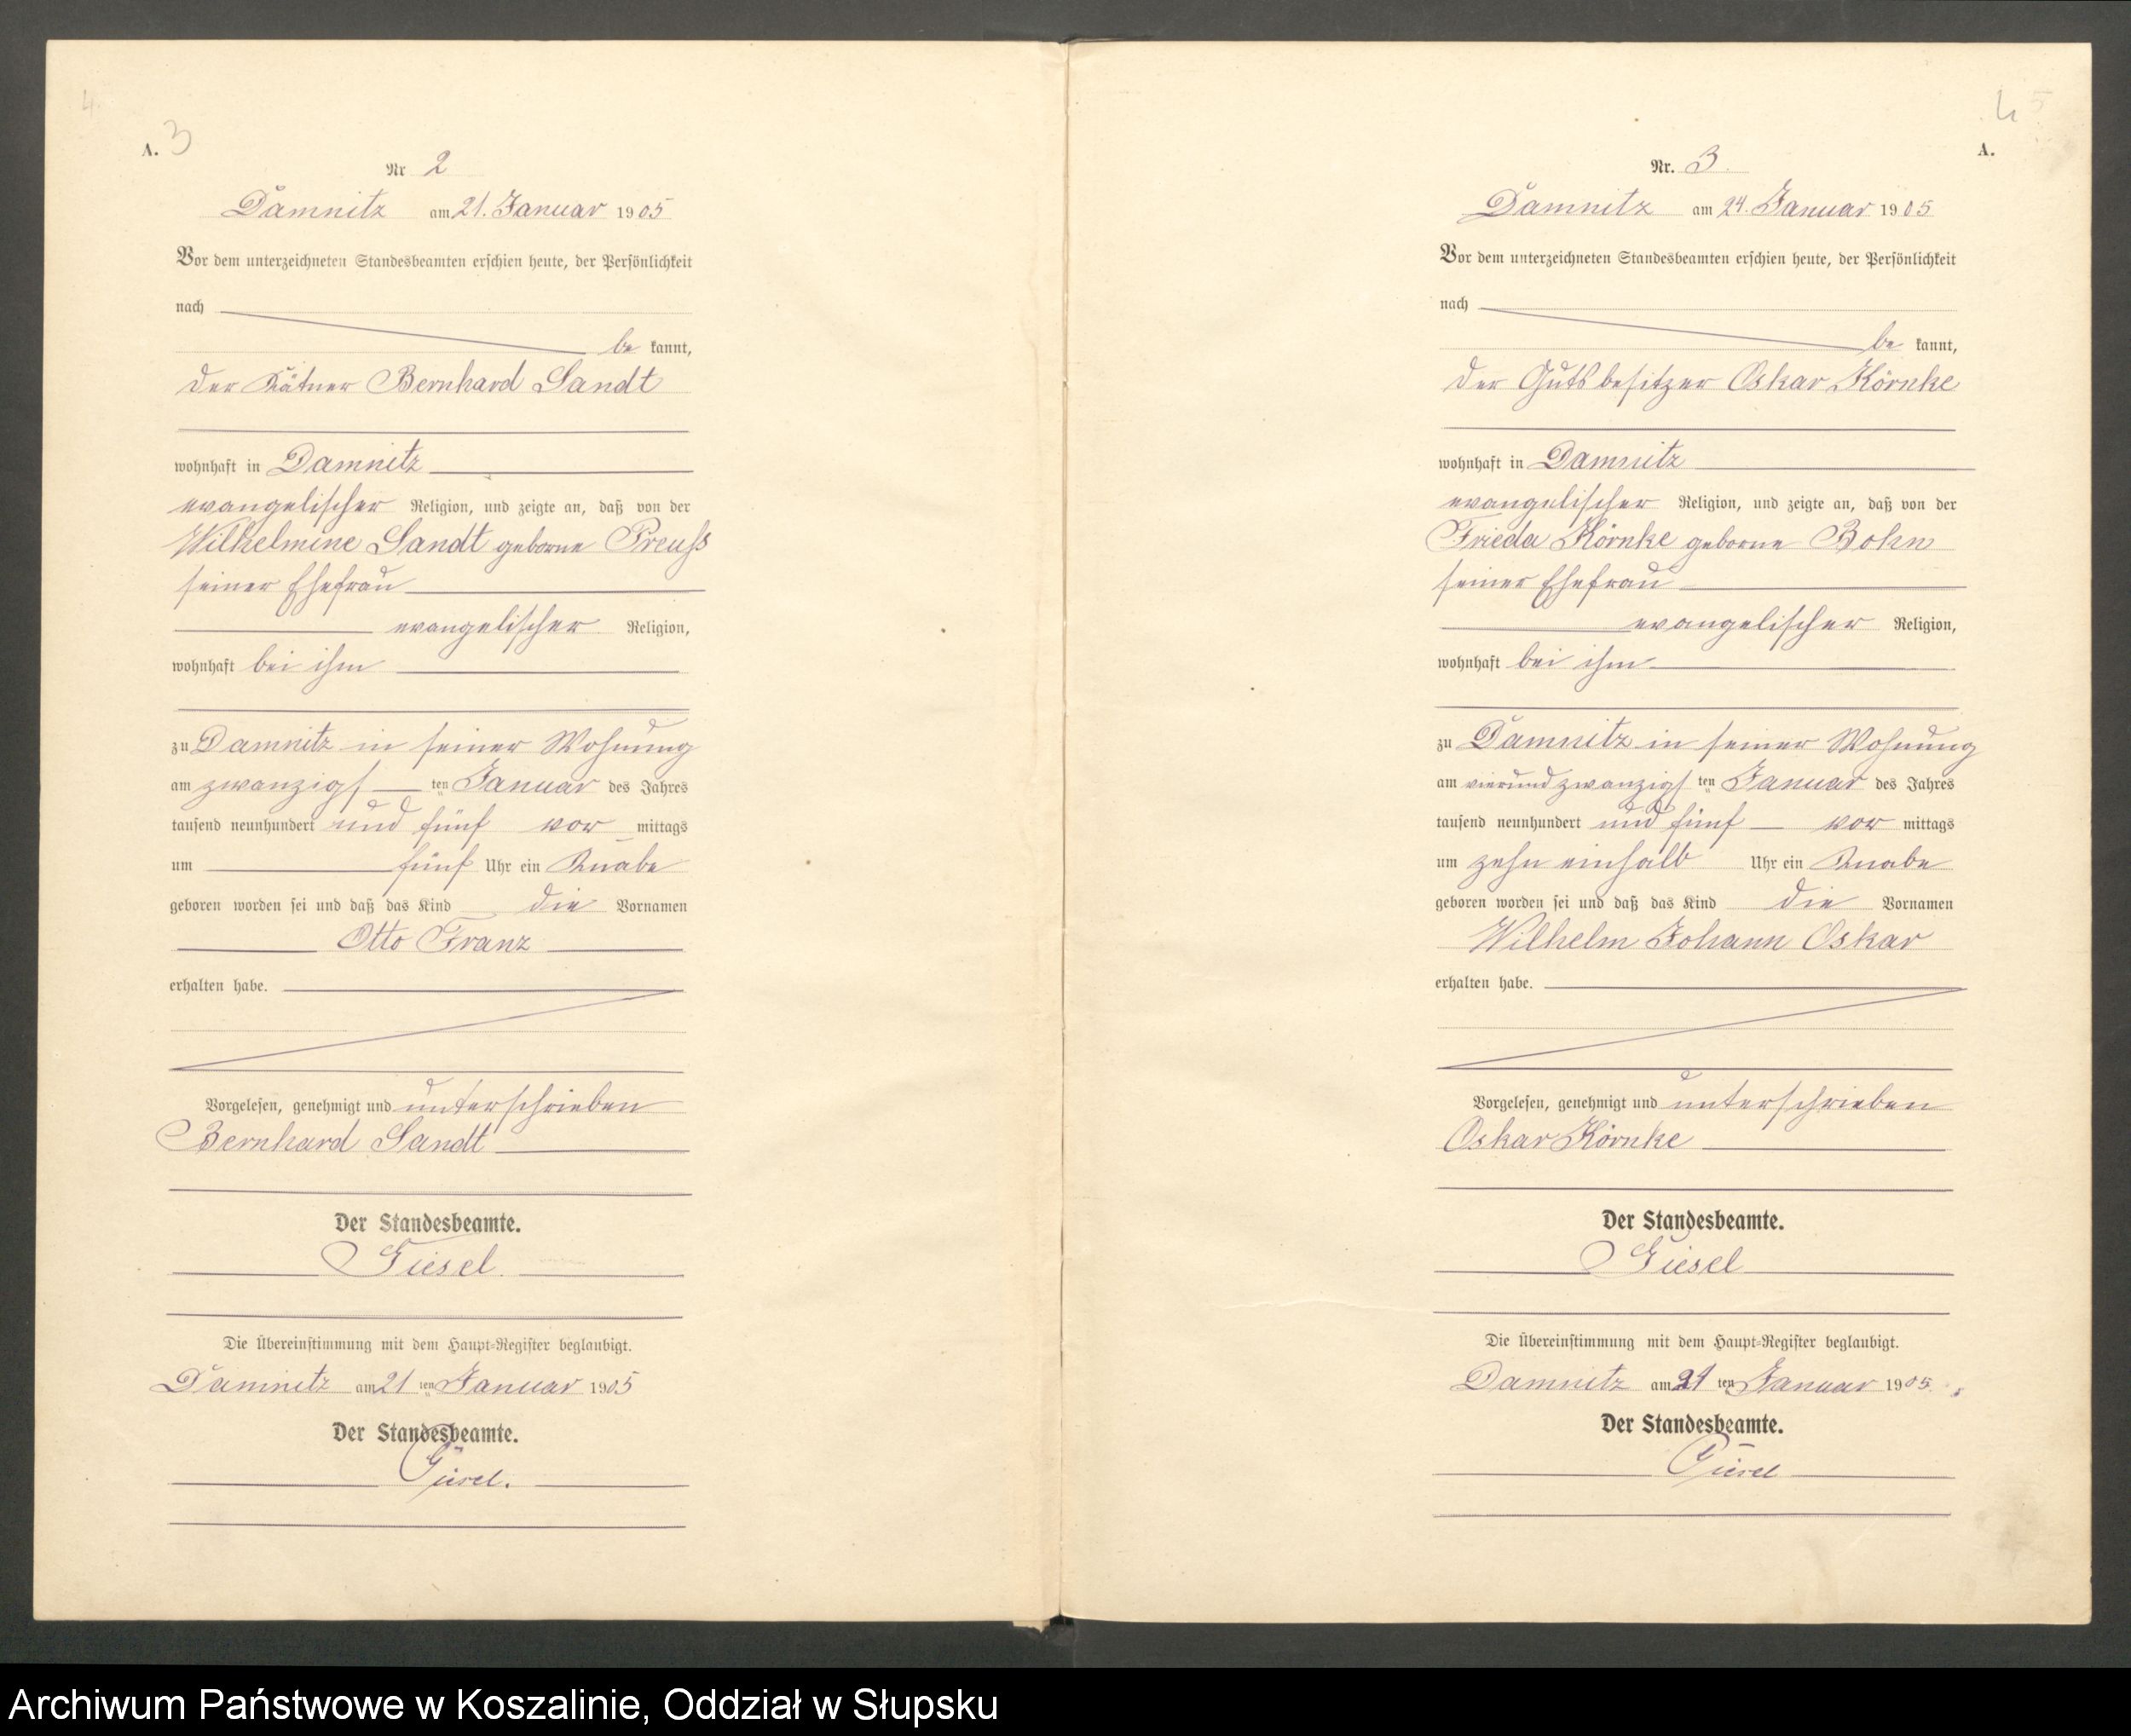 4
A. 3
Nr 2
Damnitz am 21. Januar 1905
Vor dem unterzeichneten Standesbeamten erschien heute, der Persönlichkeit
nach
be kannt,
der Kätner Bernhard Sandt
wohnhaft in Damnitz
evangelischer Religion, und zeigte an, daß von der
Wilhelmine Sandt geborne Preuß
seiner Ehefrau
evangelischer Religion,
wohnhaft bei ihm
zu Damnitz in seiner Wohnung
am zwanzigs ten Januar des Jahres
tausend neunhundert und fünf vor mittags
um fünf Uhr ein Knabe
geboren worden sei und daß das Kind die Vornamen
Otto Franz
erhalten habe.
Vorgelesen, genehmigt und unterschrieben
Bernhard Sandt
Der Standesbeamte.
Giesel.
Die Übereinstimmung mit dem Haupt-Register beglaubigt.
Damnitz am 21 ten Januar 1905
Der Standesbeamte.
Giesel.
4 5
A.
Nr. 3.
Damnitz am 24. Januar 1905
Vor dem unterzeichneten Standesbeamten erschien heute, der Persönlichkeit
nach
be kannt,
der Gutsbesitzer Oskar Körnke
wohnhaft in Damnitz
evangelischer Religion, und zeigte an, daß von der
Frieda Körnke geborne Bohn
seiner Ehefrau
evangelischer Religion,
wohnhaft bei ihm
zu Damnitz in seiner Wohnung
am vierundzwanzigs ten Januar des Jahres
tausend neunhundert und fünf vor mittags
um zehn einhalb Uhr ein Knabe
geboren worden sei und daß das Kind die Vornamen
Wilhelm Johann Oskar
erhalten habe.
Vorgelesen, genehmigt und unterschrieben
Oskar Körnke
Der Standesbeamte.
Giesel
Die Übereinstimmung mit dem Haupt-Register beglaubigt.
Damnitz am ten Januar 1905.
Der Standesbeamte.
Giesel
Archiwum Państwowe w Koszalinie, Oddział w Słupsku